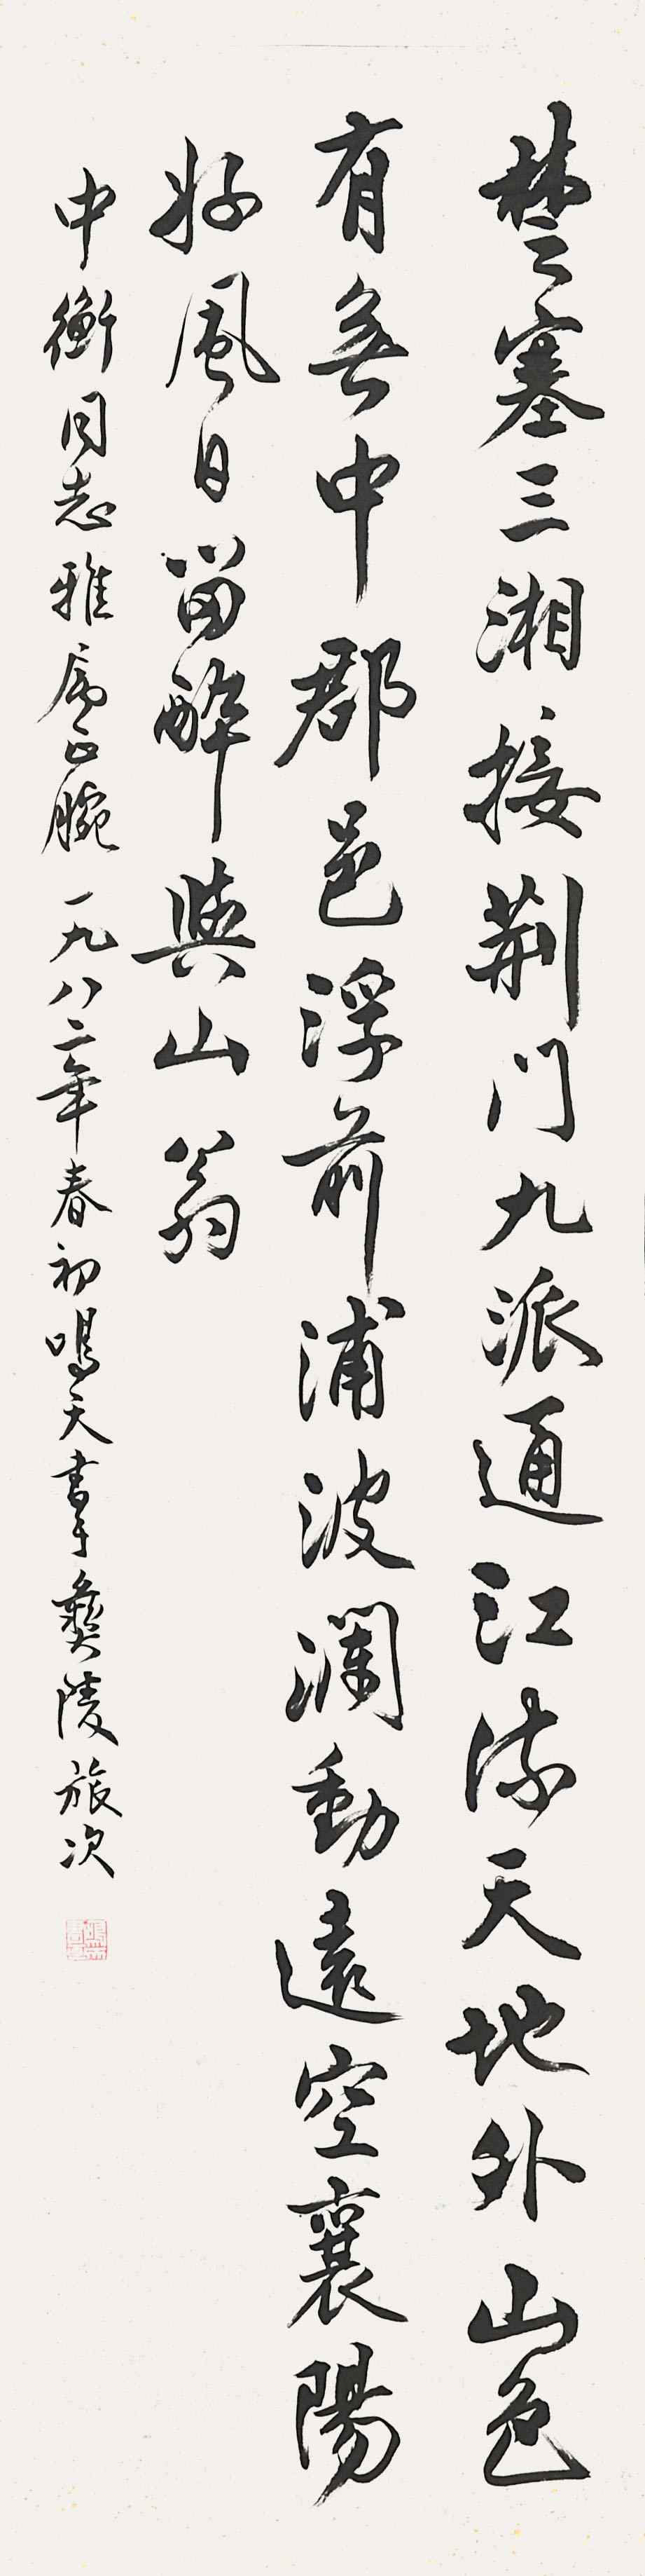 楚塞三湘接荆門九派通江流天地外山色
有無中郡邑浮前浦波瀾動遠空襄陽
好風日留醉與山翁
中衡同志雅属正腕 一九八二年春初鳴天書于彝陵旅次